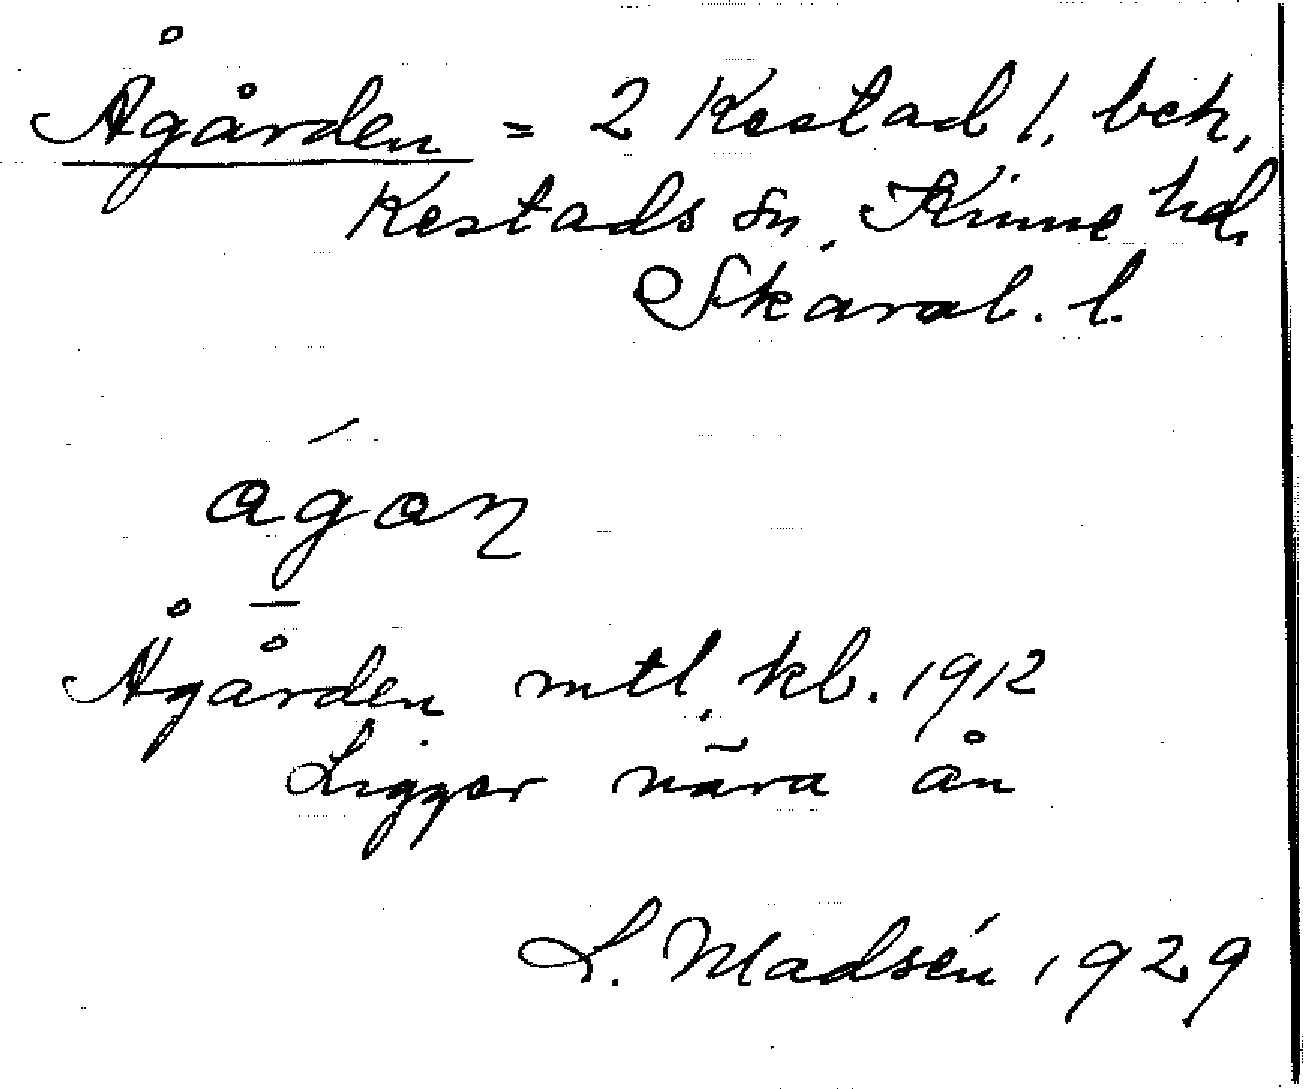 Ågården = 2 Kestad 1. beh,
Kestads sn, Kinne hd,
Skarab. l.
ágan
Ågården mtl. kb. 1912
Ligger nära ån
L. Madsén 1929